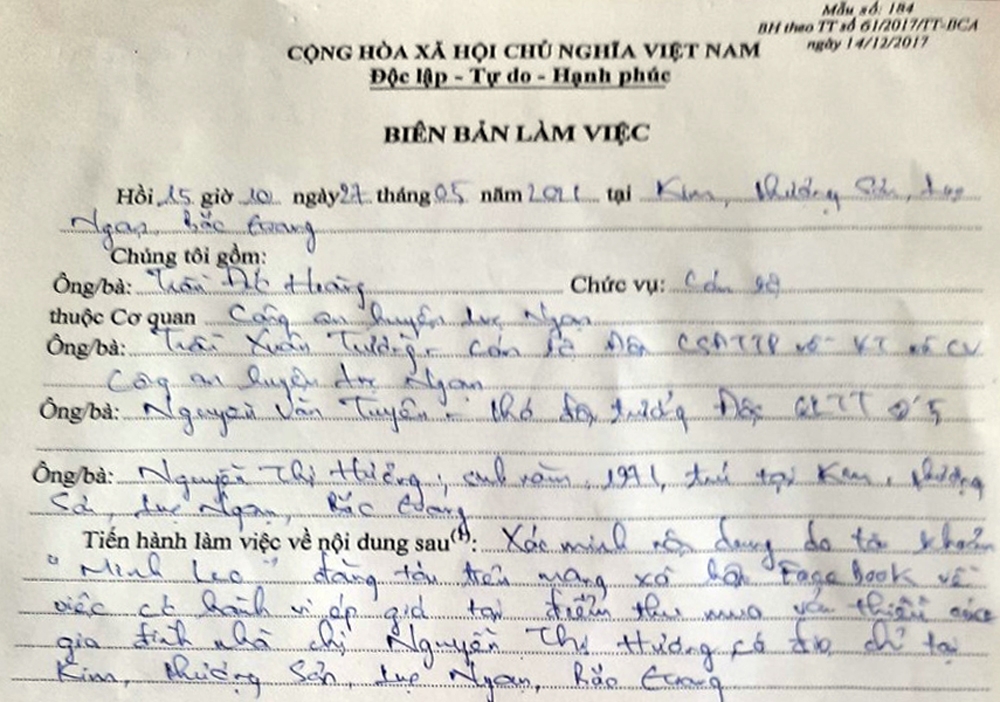 Mẫu số: 184
BH theo TT số 61/2017/TT-BCA
ngày 14/12/2017
CỘNG HÒA XÃ HỘI CHỦ NGHĨA VIỆT NAM
Độc lập - Tự do - Hạnh phúc
BIÊN BẢN LÀM VIỆC
Hồi 15 giờ 10 ngày 27 tháng 05 năm 2021 tại Kim, Phượng Sơn, Lục
Ngạn, Bắc Giang
Chúng tôi gồm:
Ông/bà: Trần Hoàng Chức vụ: Cán bộ
thuộc Cơ quan Công an huyện Lục Ngạn
Ông/bà: Trần Xuân Trường - Cán bộ Đội CSĐTTP về KT và CV
Công an huyện Lục Ngạn
Ông/bà: Nguyễn Văn Tuyên - Phó đội trưởng Đội QLTT số 5
Ông/bà: Nguyễn Thị Hường, sinh năm 1971, trú tại Kim, Phượng
Sơn, Lục Ngạn, Bắc Giang
Tiến hành làm việc về nội dung sau(1): Xác minh nội dung do tài khoản
"Minh Leo" đăng tải trên mạng xã hội FaceBook về
việc có hành vi ép giá tại điểm thu mua vải thiều của
gia đình nhà chị Nguyễn Thị Hường có địa chỉ tại
Kim, Phượng Sơn, Lục Ngạn, Bắc Giang